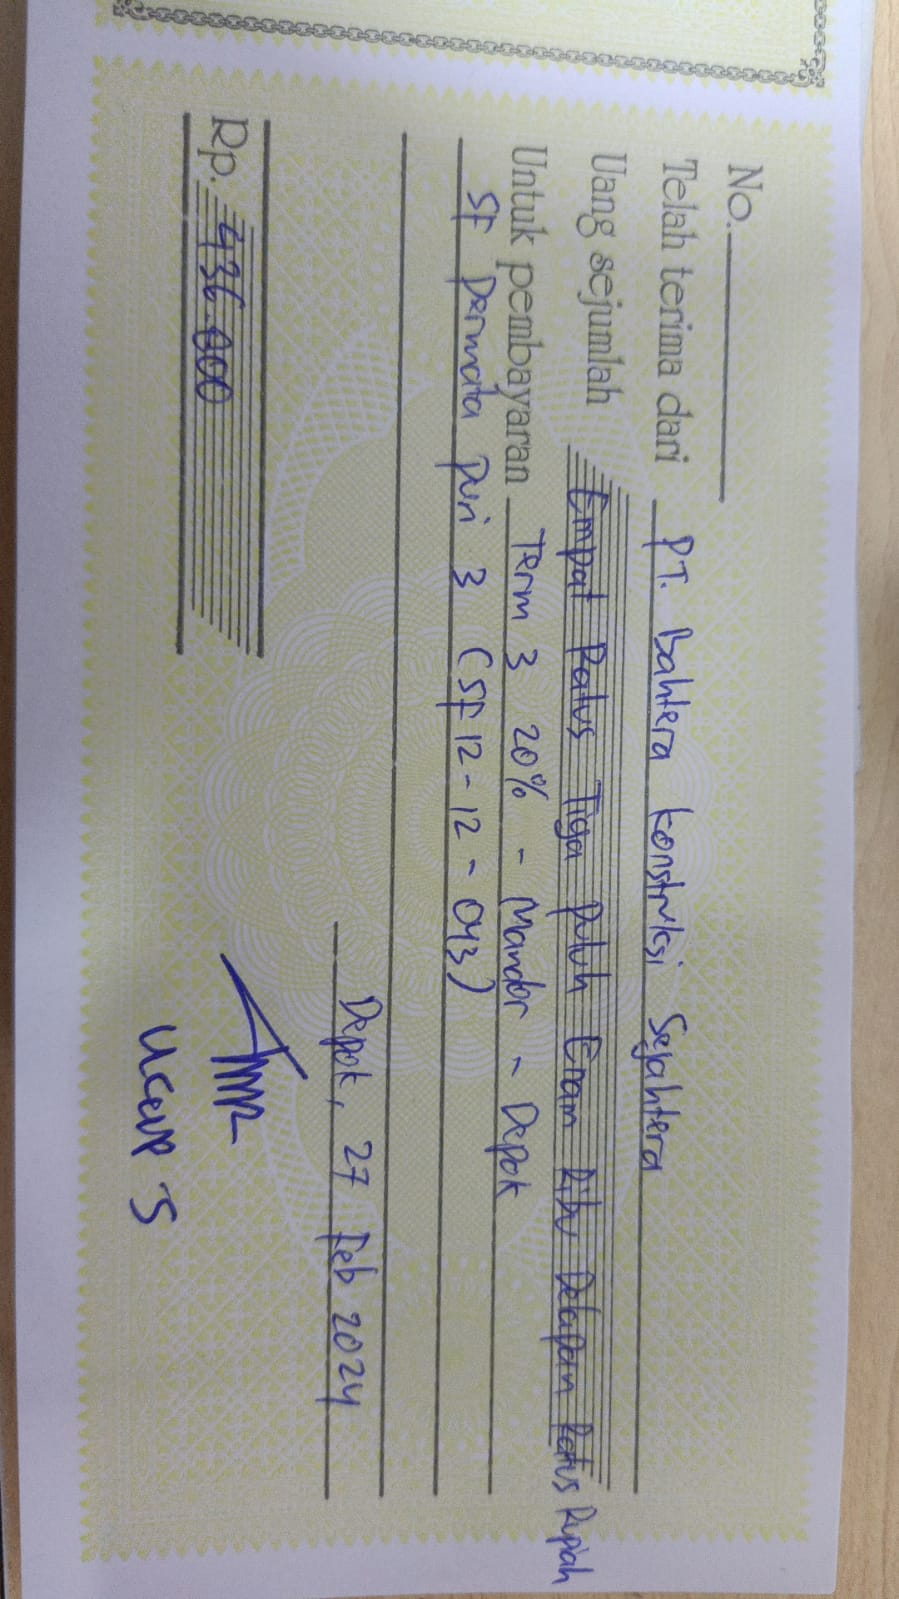 No.
Telah terima dari PT. Bahtera konstruksi Sejahtera
Uang sejumlah Empat Ratus Tiga puluh Enam Ribu Delapan Ratus Rupiah
Untuk pembayaran Term 3 20% - Mandor - Depok
SF Permata puri 3 (SF 12-12-043)
Depok, 27 Feb 2024
Rp. 436.000
Ucup S